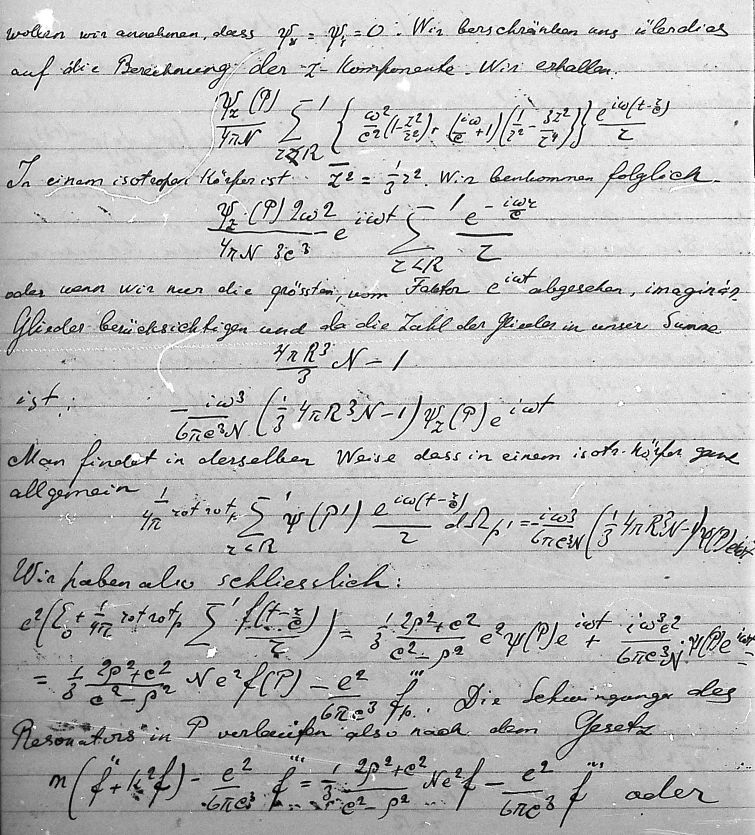 wollen wir annehmen, dass ψ_x = ψ_y = 0. Wir berschränken uns überdies
auf die Berechnung der z-Komponente. Wir erhalten.
ψ_z(P)/4πN Σ'_{r<R} { ω²/c² (1 - z²/r²) + (iω/c + 1)(1/r² - 3z²/r⁴) } e^{iω(t-r/c)}/r
In einem isotropen Körper ist z̄² = 1/3 r². Wir benkommen folglich
ψ_z(P) 2ω²/4πN 3c³ e^{iωt} Σ'_{r<R} e^{-iωr/c}/r
oder wenn wir nur die grössten, vom Faktor e^{iωt} abgesehen, imaginär.
Glieder berücksichtigen und da die Zahl der Glieder in unser Summe
4πR³/3 N - 1
ist:
- iω³/6πc³N (1/3 4πR³N - 1) ψ_z(P) e^{iωt}
Man findet in derselben Weise dass in einem isotr. Körper ganz
allgemein
1/4π rot rot_P Σ'_{r<R} ψ(P') e^{iω(t-r/c)}/r dΩ_{P'} = - iω³/6πc³N (1/3 4πR³N - 1) ψ(P) e^{iωt}
Wir haben also schliesslich:
e² (E_0 + 1/4π rot rot_P Σ' f(t-r/c)/r) = 1/3 2ρ²+c²/c²-ρ² e² ψ(P) e^{iωt} + iω³e²/6πc³N ψ(P) e^{iωt} =
= 1/3 2ρ²+c²/c²-ρ² N e² f(P) - e²/6πc³ f'''_P. Die Schwingunge des
Resonators in P verlaufen also nach dem Gesetz
m(f'' + k²f) - e²/6πc³ f''' = 1/3 2ρ²+c²/c²-ρ² Ne²f - e²/6πc³ f''' oder